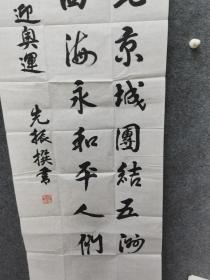 京城團結五洲
海永和平人們
迎奧運
先振撰書